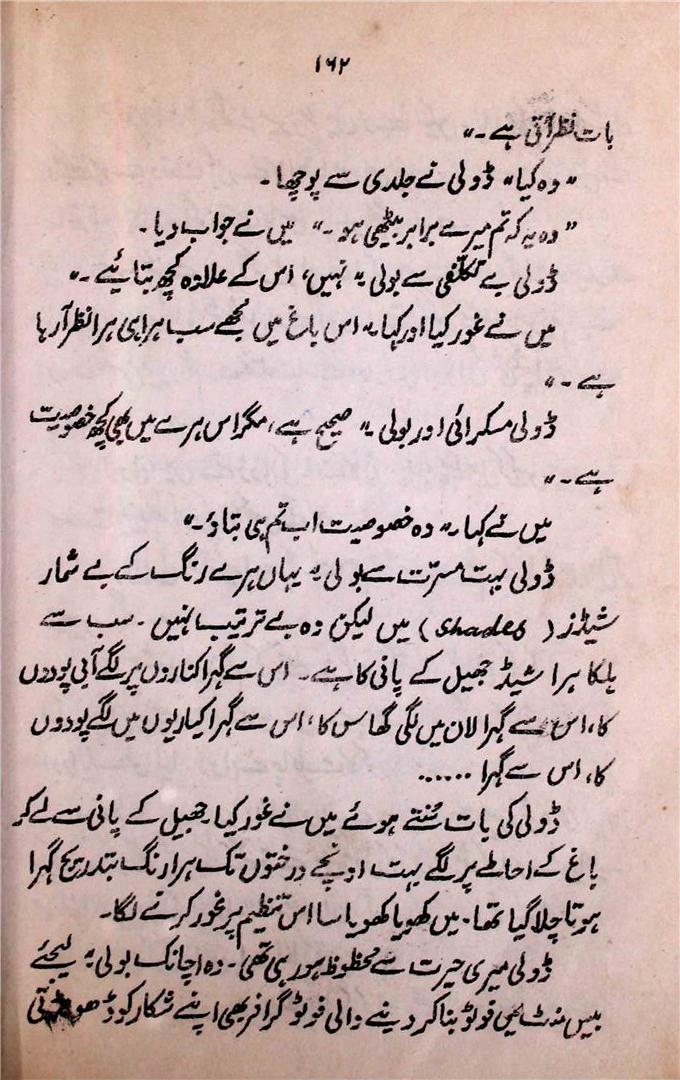 ۱۶۲
بات نظر آتی ہے۔"
"وہ کیا" ڈولی نے جلدی سے پوچھا۔
"وہ یہ کہ تم میرے برابر بیٹھی ہو۔" میں نے جواب دیا۔
ڈولی بے تکلفی سے بولی "نہیں، اس کے علاوہ کچھ بتائیے۔"
میں نے غور کیا اور کہا "اس باغ میں مجھے سب ہرا ہی ہرا نظر آرہا
ہے۔"
ڈولی مسکرائی اور بولی "صحیح ہے، مگر اس ہرے میں بھی کچھ خصوصیت
ہے۔"
میں نے کہا۔ "وہ خصوصیت اب تم ہی بتاؤ۔"
ڈولی بہت مسرّت سے بولی "یہاں ہرے رنگ کے بے شمار
شیڈز (Shades) میں لیکن وہ بے ترتیب نہیں۔ سب سے
ہلکا ہرا شیڈ جھیل کے پانی کا ہے۔ اس سے گہرا کناروں پر لگے آبی پودوں
کا، اس سے گہرا لان میں لگی گھاس کا، اس سے گہرا کیاریوں میں لگے پودوں
کا، اس سے گہرا ......
ڈولی کی بات سُنتے ہوئے میں نے غور کیا۔ جھیل کے پانی سے لے کر
باغ کے احاطے پر لگے بہت اونچے درختوں تک ہرا رنگ بتدریج گہرا
ہوتا چلا گیا تھا۔ میں کھویا کھویا سا اس تنظیم پر غور کرنے لگا۔
ڈولی میری حیرت سے محظوظ ہو رہی تھی۔ وہ اچانک بولی "لیجئے
بیس منٹ میں فوٹو بنا کر دینے والی فوٹو گرافر بھی اپنے شکار کو ڈھونڈتی